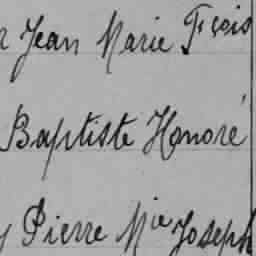 Jean Marie Fçois
Baptiste Honoré
Pierre Mie Joseph